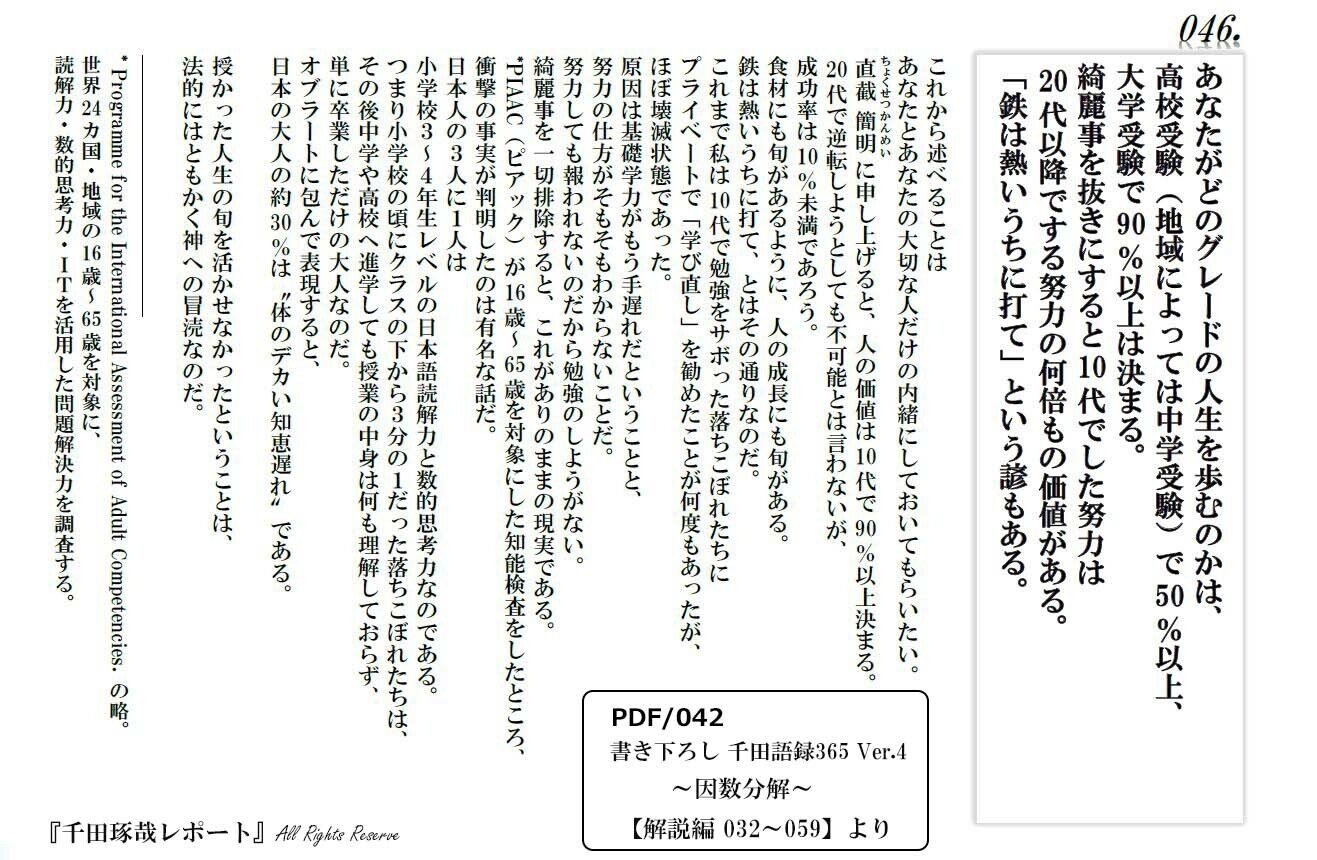 046.
あなたがどのグレードの人生を歩むのかは、
高校受験（地域によっては中学受験）で50％以上、
大学受験で90％以上は決まる。
綺麗事を抜きにすると10代でした努力は
20代以降でする努力の何倍もの価値がある。
「鉄は熱いうちに打て」という諺もある。
これから述べることは
あなたとあなたの大切な人だけの内緒にしておいてもらいたい。
ちょくせつかんめい
直截簡明に申し上げると、人の価値は10代で90％以上決まる。
20代で逆転しようとしても不可能とは言わないが、
成功率は10％未満であろう。
食材にも旬があるように、人の成長にも旬がある。
鉄は熱いうちに打て、とはその通りなのだ。
これまで私は10代で勉強をサボった落ちこぼれたちに
プライベートで「学び直し」を勧めたことが何度もあったが、
ほぼ壊滅状態であった。
原因は基礎学力がもう手遅れだということと、
努力の仕方がそもそもわからないことだ。
努力しても報われないのだから勉強のしようがない。
綺麗事を一切排除すると、これがありのままの現実である。
*PIAAC（ピアック）が16歳～65歳を対象にした知能検査をしたところ、
衝撃の事実が判明したのは有名な話だ。
日本人の3人に1人は
小学校3～4年生レベルの日本語読解力と数的思考力なのである。
つまり小学校の頃にクラスの下から3分の1だった落ちこぼれたちは、
その後中学や高校へ進学しても授業の中身は何も理解しておらず、
単に卒業しただけの大人なのだ。
オブラートに包んで表現すると、
日本の大人の約30％は〝体のデカい知恵遅れ〟である。
授かった人生の旬を活かせなかったということは、
法的にはともかく神への冒涜なのだ。
*Programme for the International Assessment of Adult Competencies. の略。
世界24カ国・地域の16歳～65歳を対象に、
読解力・数的思考力・ITを活用した問題解決力を調査する。
PDF/042
書き下ろし 千田語録365 Ver.4
～因数分解～
【解説編 032～059】より
『千田琢哉レポート』All Rights Reserve